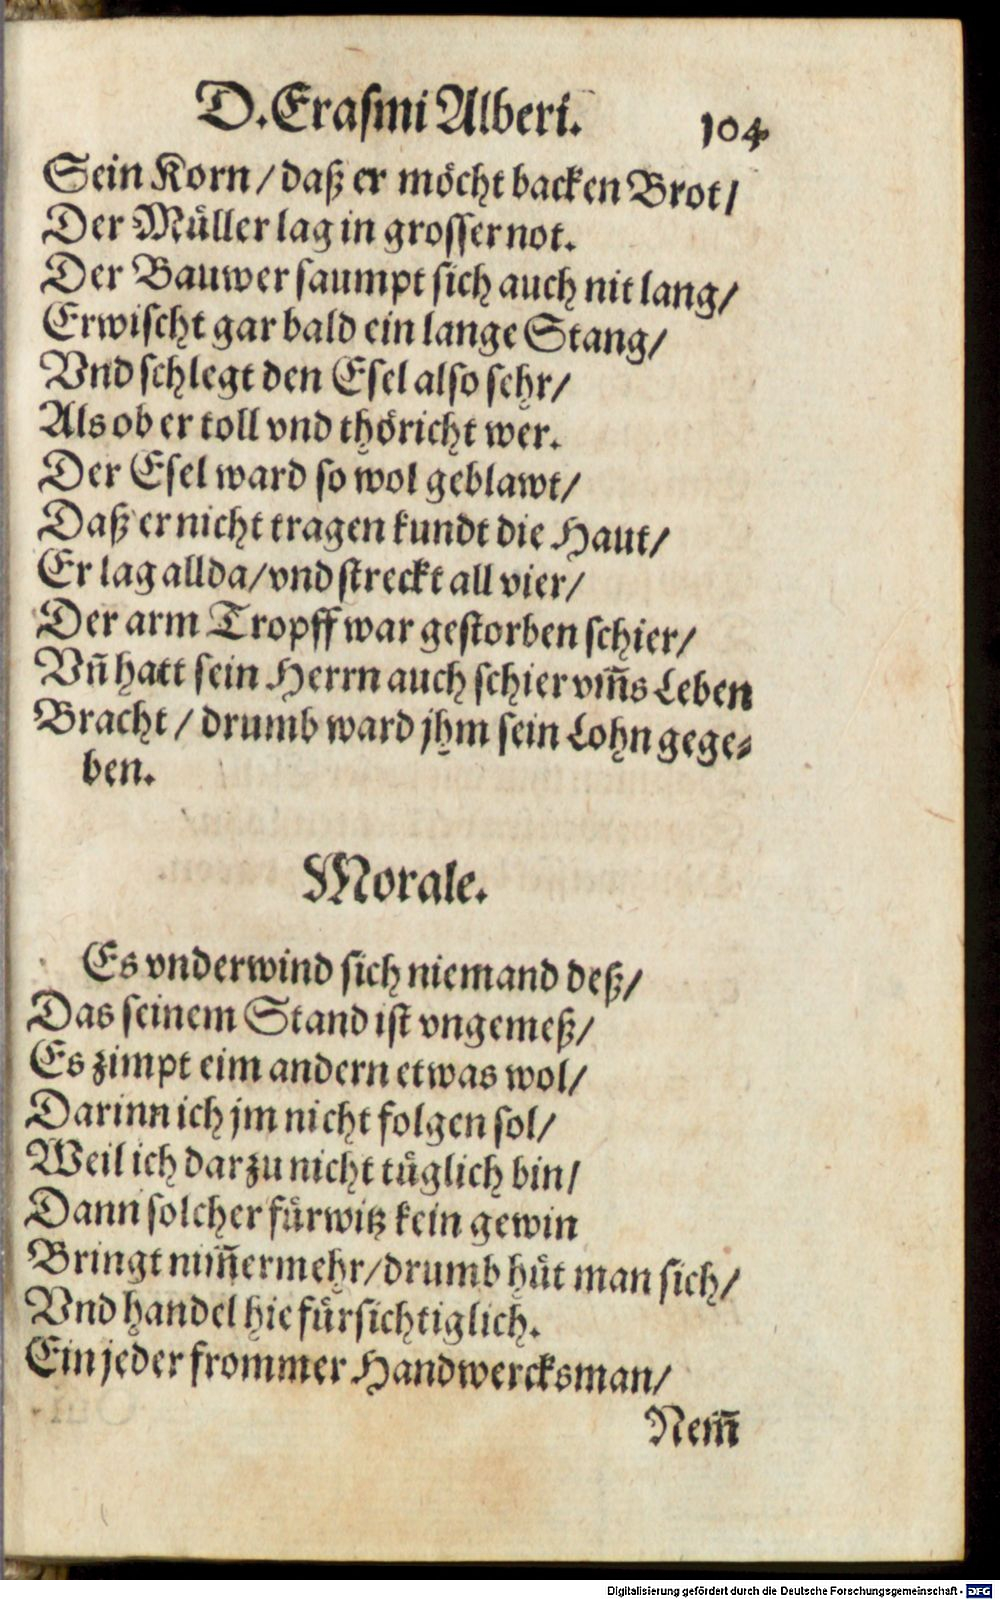 D. Erasmi Alberi. 104
Sein Korn / daß er möcht backen Brot /
Der Müller lag in grosser not.
Der Bauwer saumpt sich auch nit lang /
Erwischt gar bald ein lange Stang /
Vnd schlegt den Esel also sehr /
Als ob er toll vnd thöricht wer.
Der Esel ward so wol geblawt /
Daß er nicht tragen kundt die Haut /
Er lag allda / vnd streckt all vier /
Der arm Tropff war gestorben schier /
Vn̄ hatt sein Herrn auch schier vm̄s Leben
Bracht / drumb ward jhm sein Lohn gege⸗
ben.
Morale.
Es vnderwind sich niemand deß /
Das seinem Stand ist vngemeß /
Es zimpt eim andern etwas wol /
Darinn ich jm nicht folgen sol /
Weil ich darzu nicht tüglich bin /
Dann solcher fürwitz kein gewin
Bringt nim̄ermehr / drumb hüt man sich /
Vnd handel hie fürsichtiglich.
Ein jeder frommer Handwercksman /
Nem̄
Digitalisierung gefördert durch die Deutsche Forschungsgemeinschaft - DFG